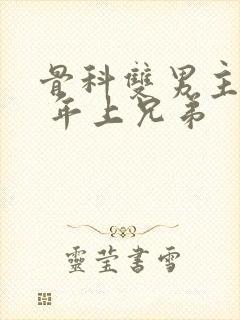 骨科雙男主
年上兄弟
靈莹書雪